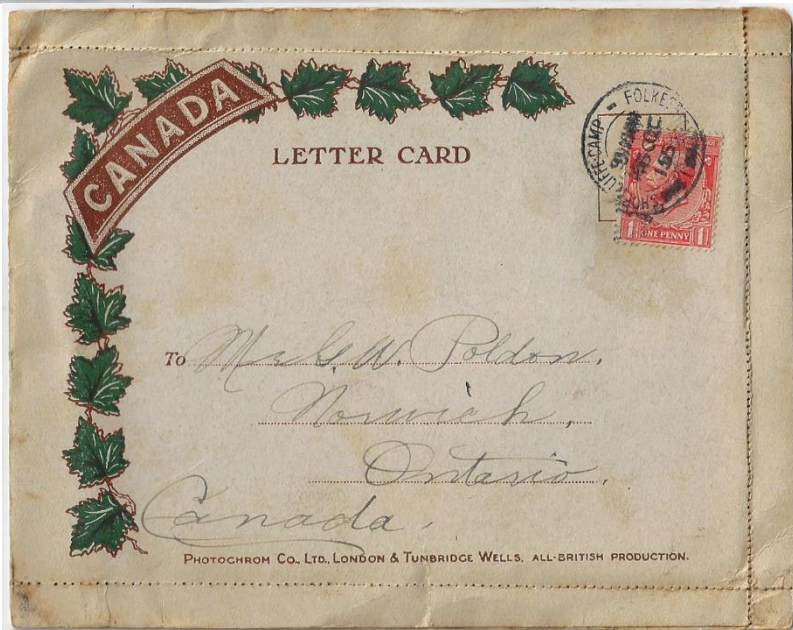 CANADA
LETTER CARD
FOLKE
CAMP
ONE PENNY
1 1
To Mr G. W. Poldon,
Norwich,
Ontario,
Canada.
PHOTOCHROM CO., LTD., LONDON & TUNBRIDGE WELLS, ALL-BRITISH PRODUCTION.